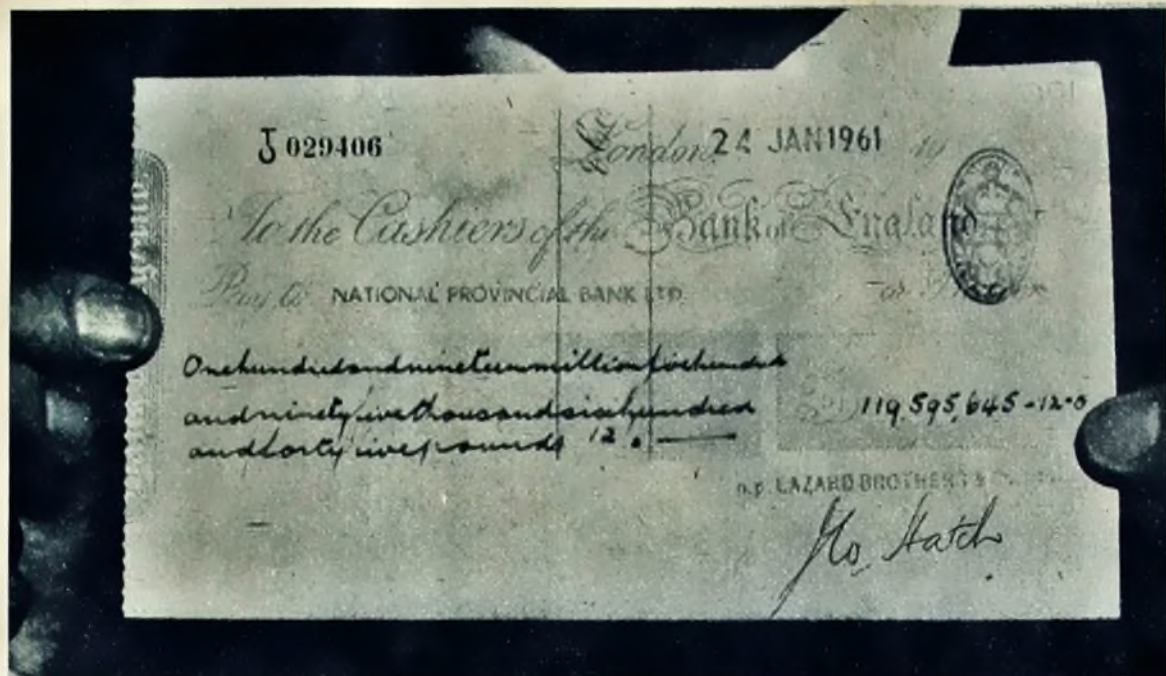 J 029406
London, 24 JAN 1961 19
To the Cashiers of the Bank of England
Pay to NATIONAL PROVINCIAL BANK LTD. or
One hundred and nineteen million five hundred
and ninety five thousand six hundred
and forty five pounds 12.
119,595,645-12-0
p.p. LAZARD BROTHERS &
Hatch